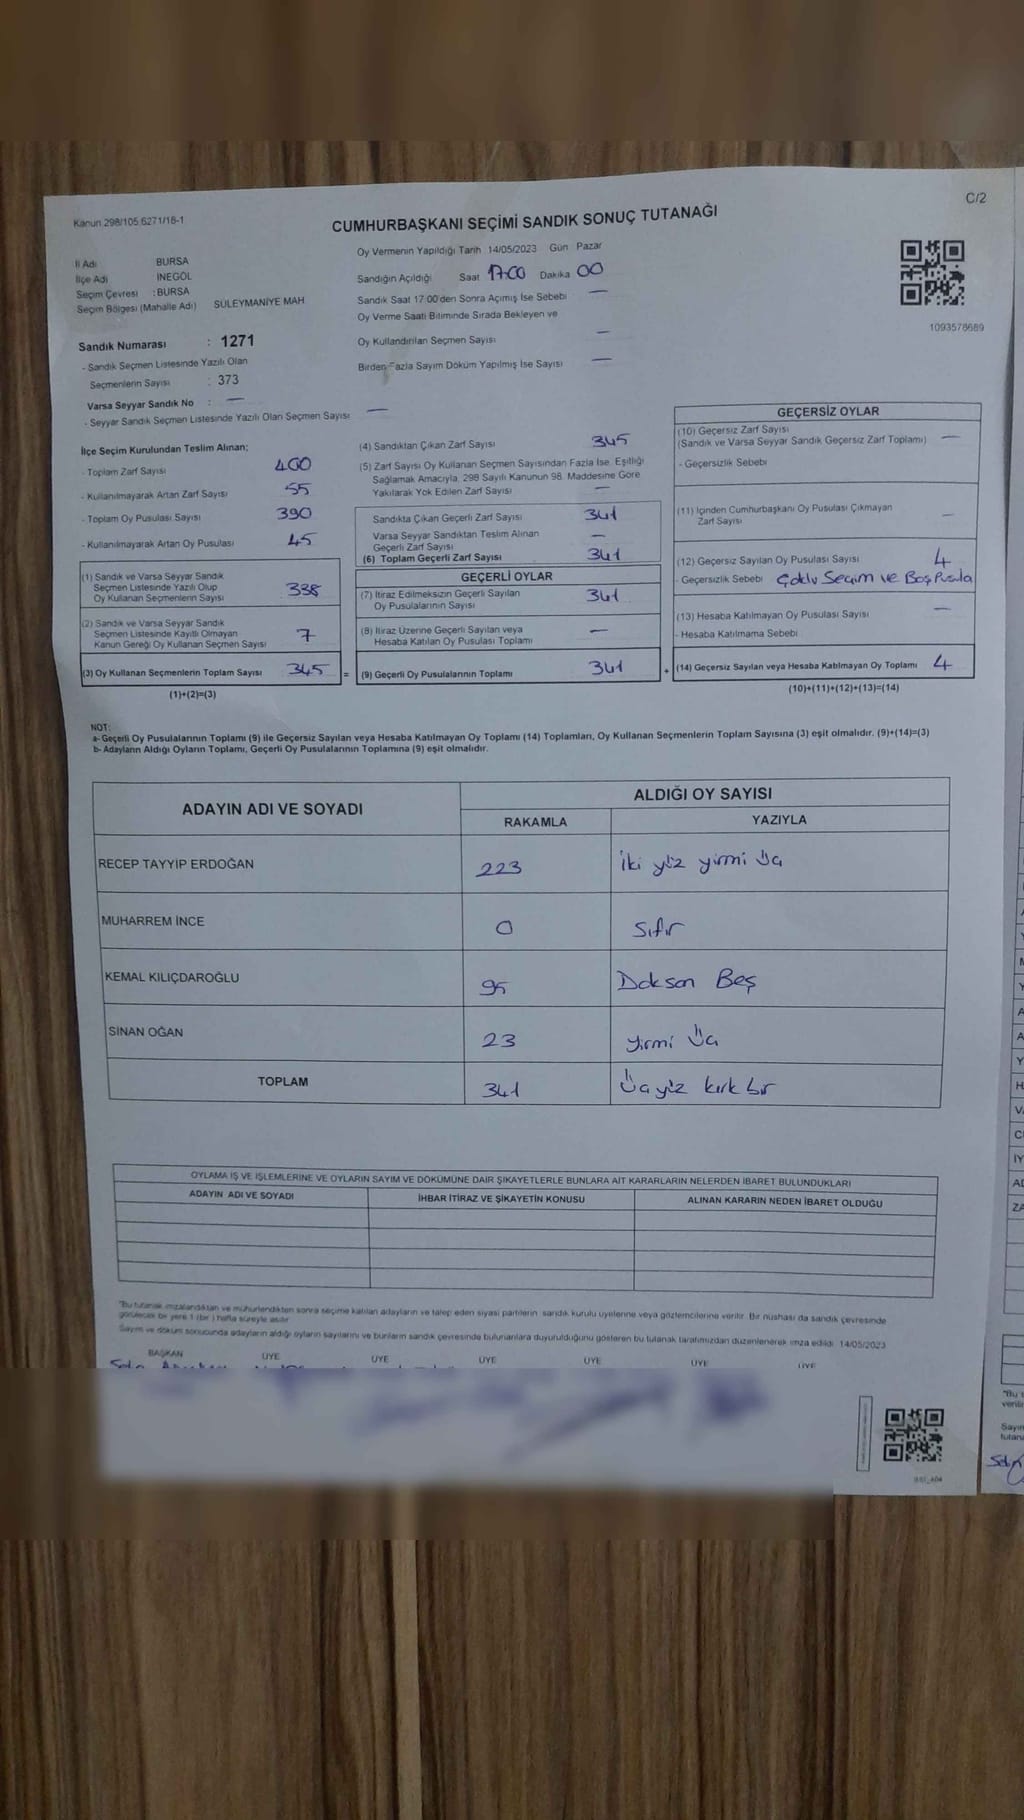 Kanun 298/105 6271/18-1
C/2
CUMHURBAŞKANI SEÇİMİ SANDIK SONUÇ TUTANAĞI
İl Adı BURSA
İlçe Adı İNEGÖL
Seçim Çevresi : BURSA
Seçim Bölgesi (Mahalle Adı) SÜLEYMANİYE MAH
Sandık Numarası : 1271
- Sandık Seçmen Listesinde Yazılı Olan
Seçmenlerin Sayısı : 373
Varsa Seyyar Sandık No : —
- Seyyar Sandık Seçmen Listesinde Yazılı Olan Seçmen Sayısı —
Oy Vermenin Yapıldığı Tarih 14/05/2023 Gün Pazar
Sandığın Açıldığı Saat 17:00 Dakika 00
Sandık Saat 17:00'den Sonra Açımış İse Sebebi —
Oy Verme Saati Bitiminde Sırada Bekleyen ve
Oy Kullandırılan Seçmen Sayısı —
Birden Fazla Sayım Döküm Yapılmış İse Sayısı —
1093576689
İlçe Seçim Kurulundan Teslim Alınan;
- Toplam Zarf Sayısı 400
- Kullanılmayarak Artan Zarf Sayısı 55
- Toplam Oy Pusulası Sayısı 390
- Kullanılmayarak Artan Oy Pusulası 45
(1) Sandık ve Varsa Seyyar Sandık
Seçmen Listesinde Yazılı Olup
Oy Kullanan Seçmenlerin Sayısı 338
(2) Sandık ve Varsa Seyyar Sandık
Seçmen Listesinde Kayıtlı Olmayan
Kanun Gereği Oy Kullanan Seçmen Sayısı 7
(3) Oy Kullanan Seçmenlerin Toplam Sayısı 345 =
(1)+(2)=(3)
(4) Sandıktan Çıkan Zarf Sayısı 345
(5) Zarf Sayısı Oy Kullanan Seçmen Sayısından Fazla İse, Eşitliği
Sağlamak Amacıyla, 298 Sayılı Kanunun 98. Maddesine Göre
Yakılarak Yok Edilen Zarf Sayısı —
Sandıkta Çıkan Geçerli Zarf Sayısı 341
Varsa Seyyar Sandıktan Teslim Alınan
Geçerli Zarf Sayısı —
(6) Toplam Geçerli Zarf Sayısı 341
GEÇERLİ OYLAR
(7) İtiraz Edilmeksizin Geçerli Sayılan
Oy Pusulalarının Sayısı 341
(8) İtiraz Üzerine Geçerli Sayılan veya
Hesaba Katılan Oy Pusulası Toplamı —
(9) Geçerli Oy Pusulalarının Toplamı 341 +
GEÇERSİZ OYLAR
(10) Geçersiz Zarf Sayısı
(Sandık ve Varsa Seyyar Sandık Geçersiz Zarf Toplamı) —
- Geçersizlik Sebebi
(11) İçinden Cumhurbaşkanı Oy Pusulası Çıkmayan
Zarf Sayısı —
(12) Geçersiz Sayılan Oy Pusulası Sayısı 4
- Geçersizlik Sebebi Çoklu Seçim ve Boş Pusula
(13) Hesaba Katılmayan Oy Pusulası Sayısı —
- Hesaba Katılmama Sebebi
(14) Geçersiz Sayılan veya Hesaba Katılmayan Oy Toplamı 4
(10)+(11)+(12)+(13)=(14)
NOT:
a- Geçerli Oy Pusulalarının Toplamı (9) ile Geçersiz Sayılan veya Hesaba Katılmayan Oy Toplamı (14) Toplamları, Oy Kullanan Seçmenlerin Toplam Sayısına (3) eşit olmalıdır. (9)+(14)=(3)
b- Adayların Aldığı Oyların Toplamı, Geçerli Oy Pusulalarının Toplamına (9) eşit olmalıdır.
ADAYIN ADI VE SOYADI ALDIĞI OY SAYISI
RAKAMLA YAZIYLA
RECEP TAYYİP ERDOĞAN 223 İki yüz yirmi üç
MUHARREM İNCE 0 Sıfır
KEMAL KILIÇDAROĞLU 95 Doksan Beş
SİNAN OĞAN 23 yirmi üç
TOPLAM 341 Üçyüz kırk bir
OYLAMA İŞ VE İŞLEMLERİNE VE OYLARIN SAYIM VE DÖKÜMÜNE DAİR ŞİKAYETLERLE BUNLARA AİT KARARLARIN NELERDEN İBARET BULUNDUKLARI
ADAYIN ADI VE SOYADI İHBAR İTİRAZ VE ŞİKAYETİN KONUSU ALINAN KARARIN NEDEN İBARET OLDUĞU
"Bu tutanak imzalandıktan ve mühürlendikten sonra seçime katılan adayların ve talep eden siyasi partilerin sandık kurulu üyelerine veya gözlemcilerine verilir. Bir nüshası da sandık çevresinde
görülecek bir yere 1 (bir) hafta süreyle asılır.
Sayım ve döküm sonucunda adayların aldığı oyların sayılarını ve bunların sandık çevresinde bulunanlara duyurulduğunu gösteren bu tutanak tarafımızdan düzenlenerek imza edildi. 14/05/2023
BAŞKAN ÜYE ÜYE ÜYE ÜYE ÜYE ÜYE